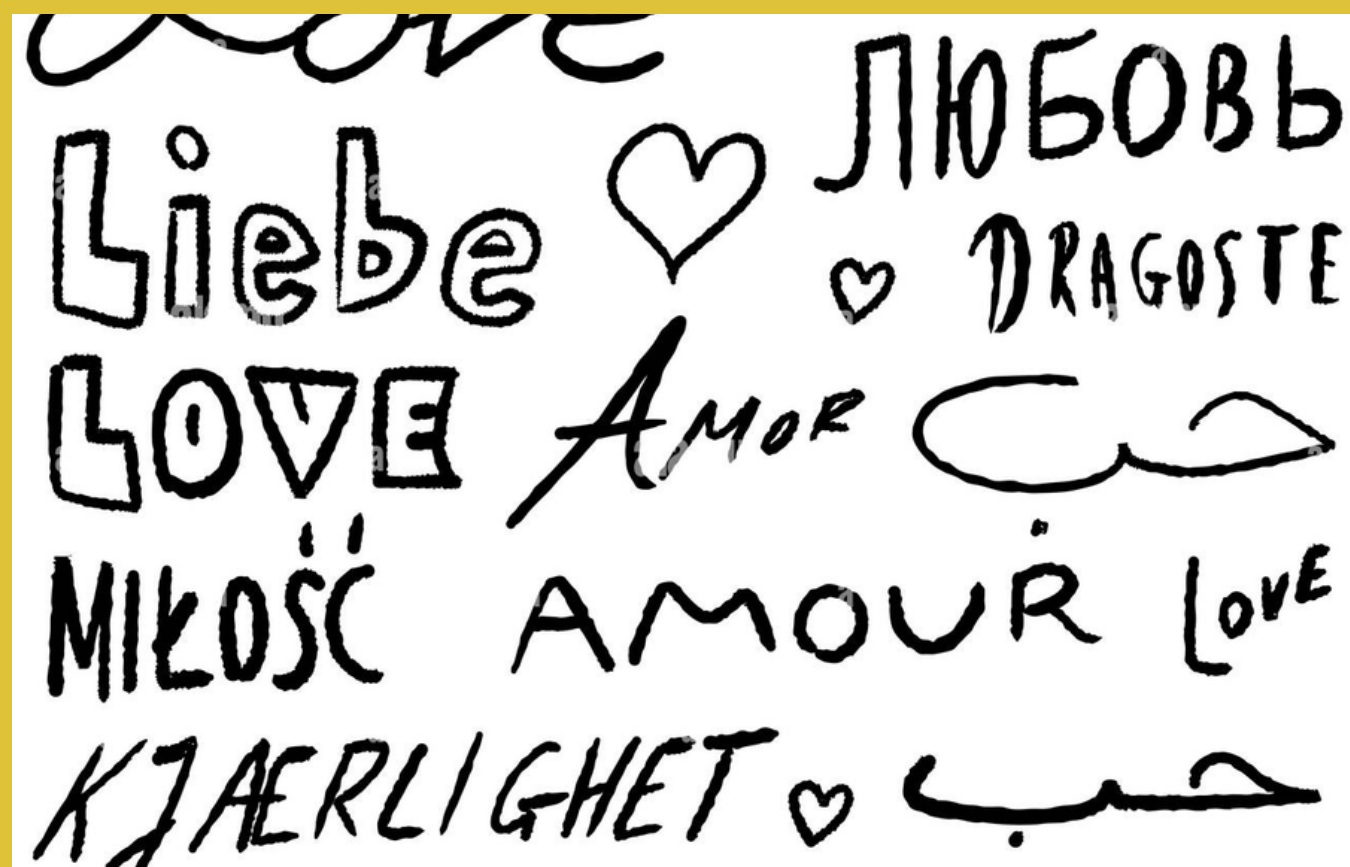 Love
ЛЮБОВЬ
Liebe
DRAGOSTE
LOVE
AMOR
حب
MIŁOŚĆ
AMOUR
LOVE
KJÆRLIGHET
حب